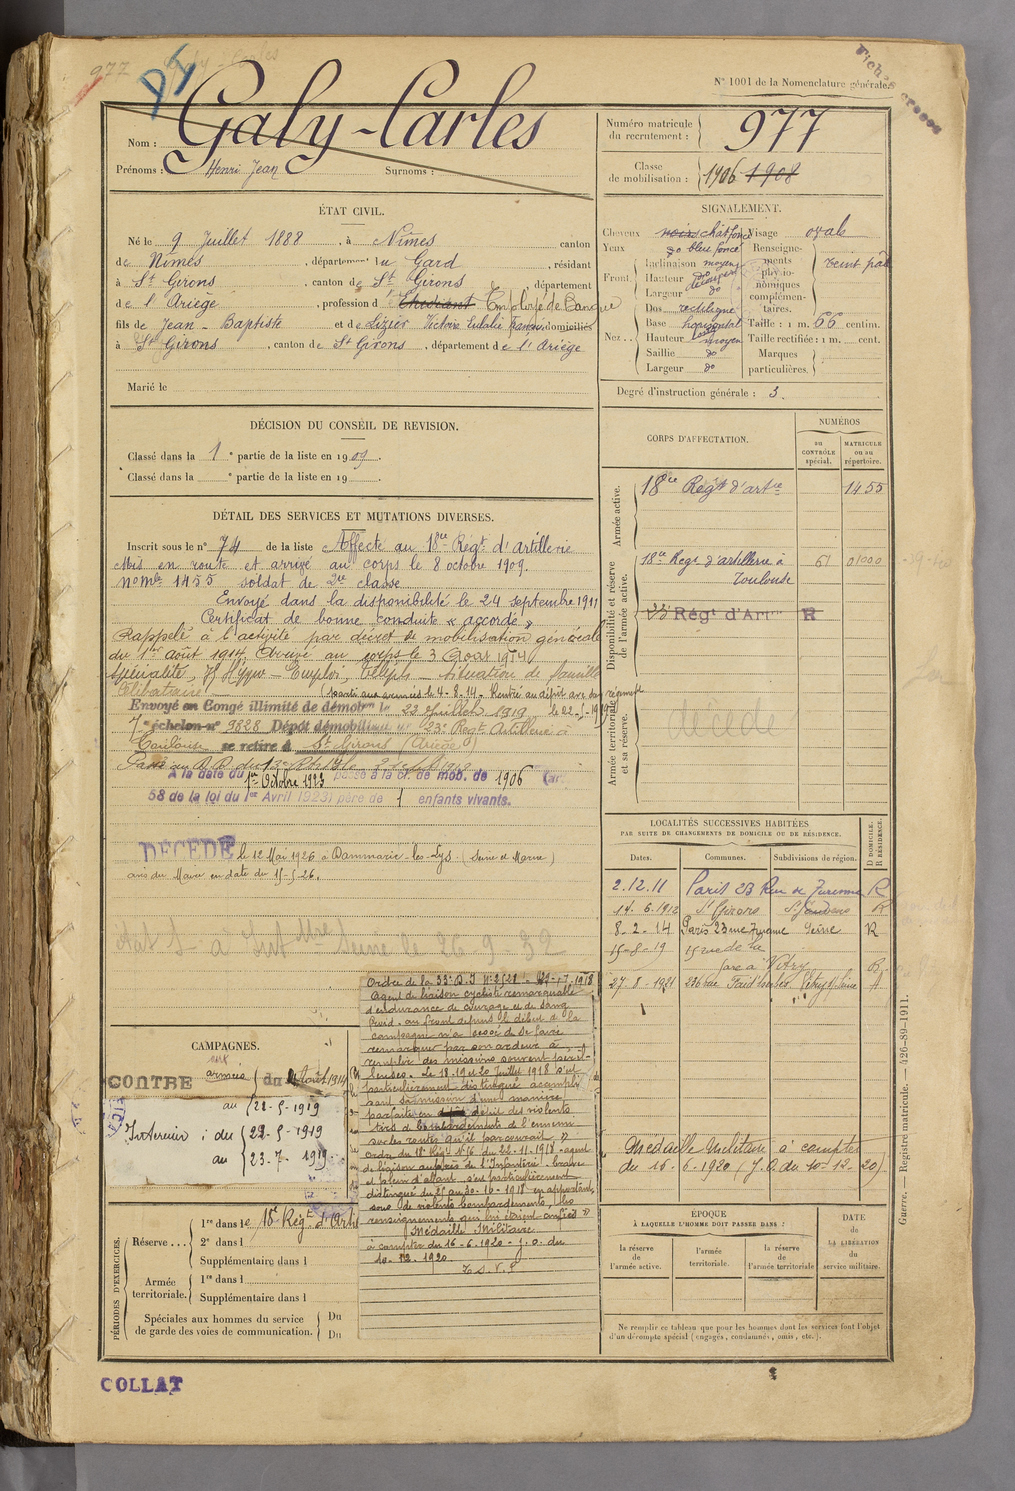 977
N° 1001 de la Nomenclature générale.
Nom : Galy-Carles
Prénoms : Henri Jean Surnoms :
Numéro matricule du recrutement : 977
Classe de mobilisation : 1906 1908
ÉTAT CIVIL.
Né le 9 Juillet 1888, à Nîmes canton
de Nîmes, département du Gard, résidant
à St Girons, canton de St Girons, département
de l'Ariège, profession d'Etudiant Employé de Banque
fils de Jean-Baptiste et de Lizier Victorie Eulalie domiciliés
à St Girons, canton de St Girons, département de l'Ariège
Marié le
SIGNALEMENT.
Cheveux noirs chât foncé Visage ovale
Yeux bleu foncé Renseignements physionomiques complémentaires. teint pâle
Front Inclinaison moyen
Hauteur do
Largeur do
Nez Dos rectiligne
Base horizontal Taille : 1 m. 66 centim.
Hauteur moyen Taille rectifiée : 1 m. cent.
Saillie do Marques particulières.
Largeur do
Degré d'instruction générale : 3.
DÉCISION DU CONSEIL DE REVISION.
Classé dans la 1e partie de la liste en 1909.
Classé dans la e partie de la liste en 19 .
CORPS D'AFFECTATION.
NUMÉROS
au CONTRÔLE spécial.
MATRICULE ou au répertoire.
Armée active.
18e Régt d'artie 1455
Disponibilité et réserve de l'armée active.
18e Regt d'artillerie à Toulouse 61 01000
Régt d'Artie R
Armée territoriale et sa réserve.
décédé
DÉTAIL DES SERVICES ET MUTATIONS DIVERSES.
Inscrit sous le n° 74 de la liste Affecté au 18e Régt d'Artillerie
Mis en route et arrivé au corps le 8 octobre 1909.
n° mle 1455 soldat de 2e classe
Envoyé dans la disponibilité le 24 septembre 1911
Certificat de bonne conduite « accordé »
Rappelé à l'activité par décret de mobilisation générale
du 1er août 1914, Arrivé au corps le 3 Aout 1914
Célibataire (parti aux armées le 4-8-14. Rentré au dépôt
Envoyé en Congé illimité de démobon le 22 Juillet 1919
7e échelon n° 9828 Dépôt démobilisateur 23e Regt Artillerie à
Toulouse se retire à St Girons (Ariège)
A la date du 1er Octobre 1923 passé à la cl. de mob. de 1906 (art
58 de la loi du 1er Avril 1923) père de 1 enfants vivants.
DÉCÉDÉ le 12 Mai 1926 à Dammarie-les-Lys (Seine et Marne)
avis du Maire en date du 15-5-26.
LOCALITÉS SUCCESSIVES HABITÉES
PAR SUITE DE CHANGEMENTS DE DOMICILE OU DE RÉSIDENCE.
Dates. Communes. Subdivisions de région. D DOMICILE. R RÉSIDENCE.
2.12.11 Paris 23 Rue de Turenne R
14.6.1912 St Girons R
8-2-14 Paris 23 rue Turenne Seine R
15-8-19 15 rue de la
gare à Vitry R
27.8-1921 Vitry s/Seine
Médaille Militaire à compter
du 16-6-1920 (J.O. du 10-12-20)
CAMPAGNES.
CONTRE
aux armées du 4 Août 1914
au 22-5-1919
Intérieur : du 22-5-1919
au 23-7-1919.
Ordre de la 33e D.I N° 2521 29-7-1918
Agent de liaison cycliste remarquable
d'endurance de courage et de sang
froid. au front depuis le début de la
campagne n'a cessé de se faire
remarquer par son ardeur à
remplir des missions souvent péril-
leuses. Le 18.19 et 20 Juillet 1918 s'est
particulièrement distingué accomplis-
sant sa mission d'une manière
parfaite en dépit des violents
tirs de bombardements de l'ennemi
sur les routes qu'il parcourait »
Ordre du 18e Régt N° 16 du 22-11-1918 agent
de liaison auprès de l'Infanterie. brave
et plein d'allant s'est particulièrement
distingué du 25 au 30-10-1918 en apportant,
sous de violents bombardements, les
renseignements qui lui étaient confiés »
Médaille Militaire
à compter du 16-6-1920 - J.O. du
10.12.1920.
T.S.V.P
PÉRIODES D'EXERCICES.
Réserve... 1re dans le 18e Régt d'Artie
2e dans l
Supplémentaire dans l
Armée territoriale. 1re dans l
Supplémentaire dans l
Spéciales aux hommes du service de garde des voies de communication. Du
Du
ÉPOQUE
À LAQUELLE L'HOMME DOIT PASSER DANS :
la réserve de l'armée active.
l'armée territoriale.
la réserve de l'armée territoriale
DATE de LA LIBÉRATION du service militaire.
Ne remplir ce tableau que pour les hommes dont les services font l'objet
d'un décompte spécial (engagés, condamnés, omis, etc.).
Guerre. — Registre matricule. — 426-89-1911.
COLLAT